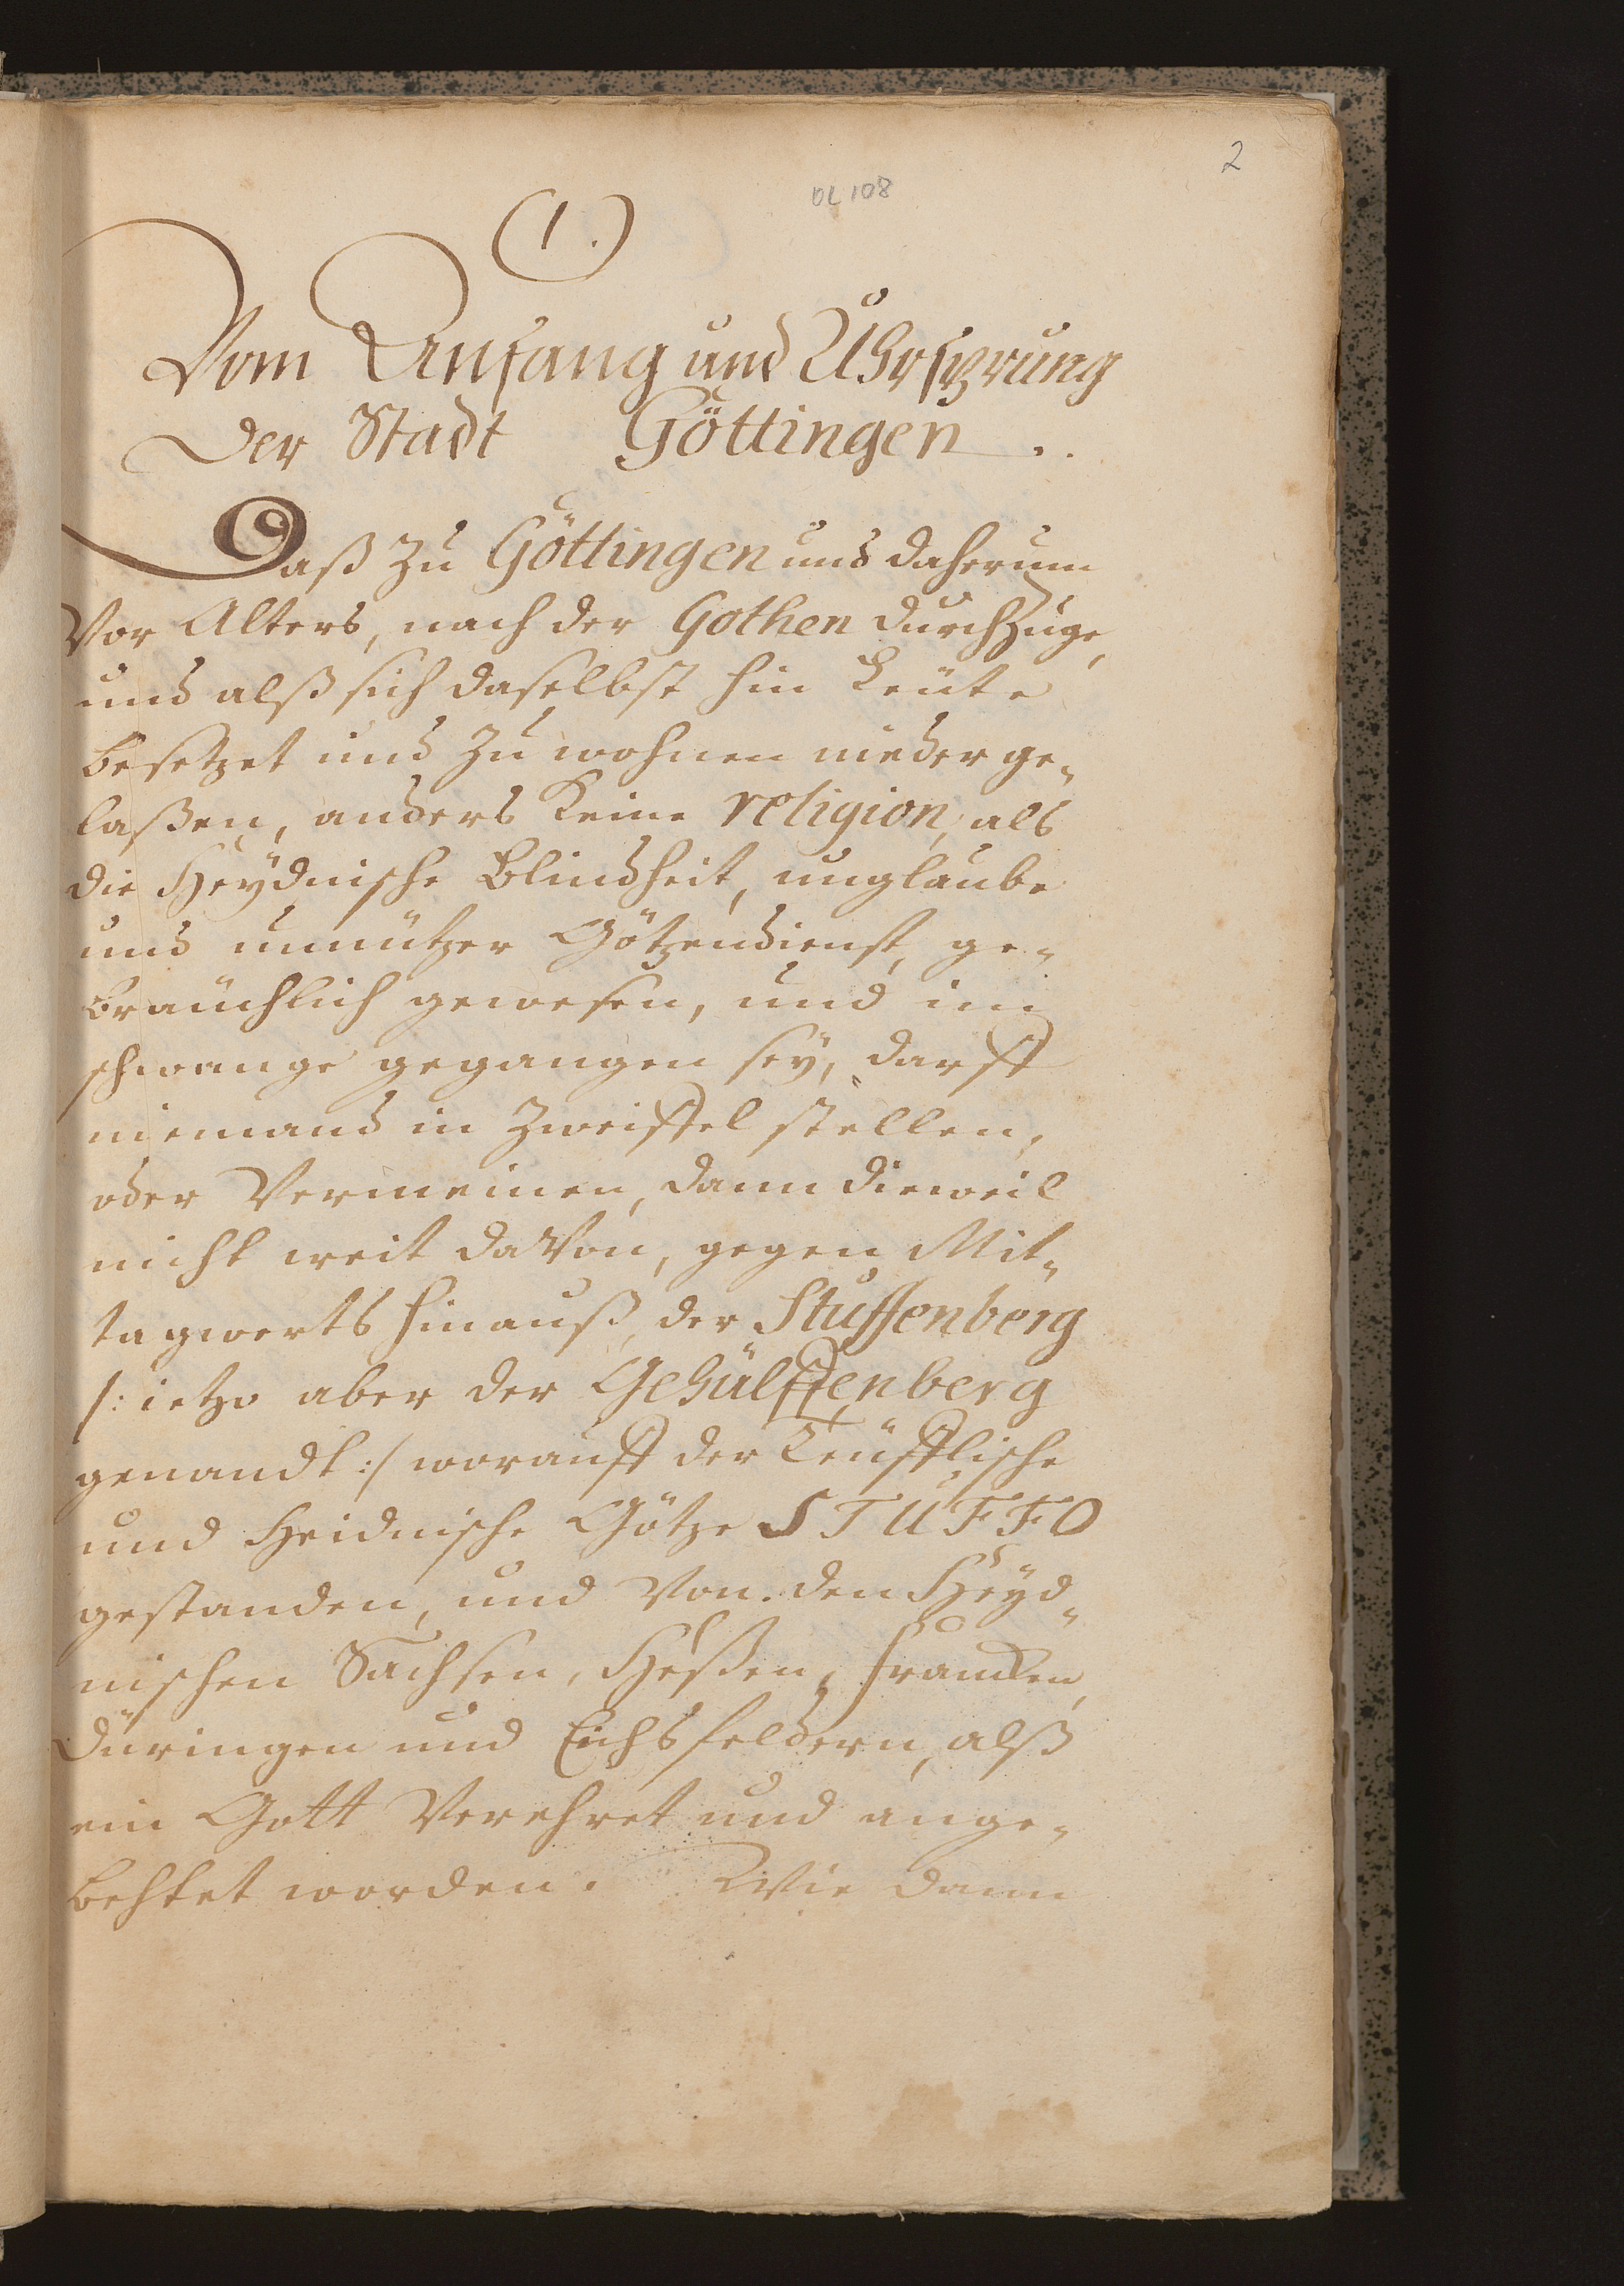 2
OL 108
(1.)
Vom Anfang und Uhrsprung
der Stadt Göttingen.
Daß zu Göttingen und daherum
Vor Alters, nach der Gothen durchzuge,
und alß sich daselbst hin Leüte
besetzet und zu wohnen nieder ge„
laßen, anders keine religion, als
die Heÿdnische Blindheit, unglaube
und unnützer Götzendienst, ge„
bräuchlich gewesen, und im
schwange gegangen seÿ, darff
niemand in Zweiffel stellen,
oder Vermeinen, dann dieweil
nicht weit daVon, gegen Mit„
tagwerts hinauß, der Stuffenberg
/: ietzo aber der Gehülffenberg
genandt :/ worauff der Teüfflische
und Heidnische Götze STUFFO
gestanden, und Von den Heÿd„
nischen Sachsen, Heßen, Francken,
Düringen und Eichsfeldern, alß
ein Gott Verehret und ange„
behtet worden. Wie dann